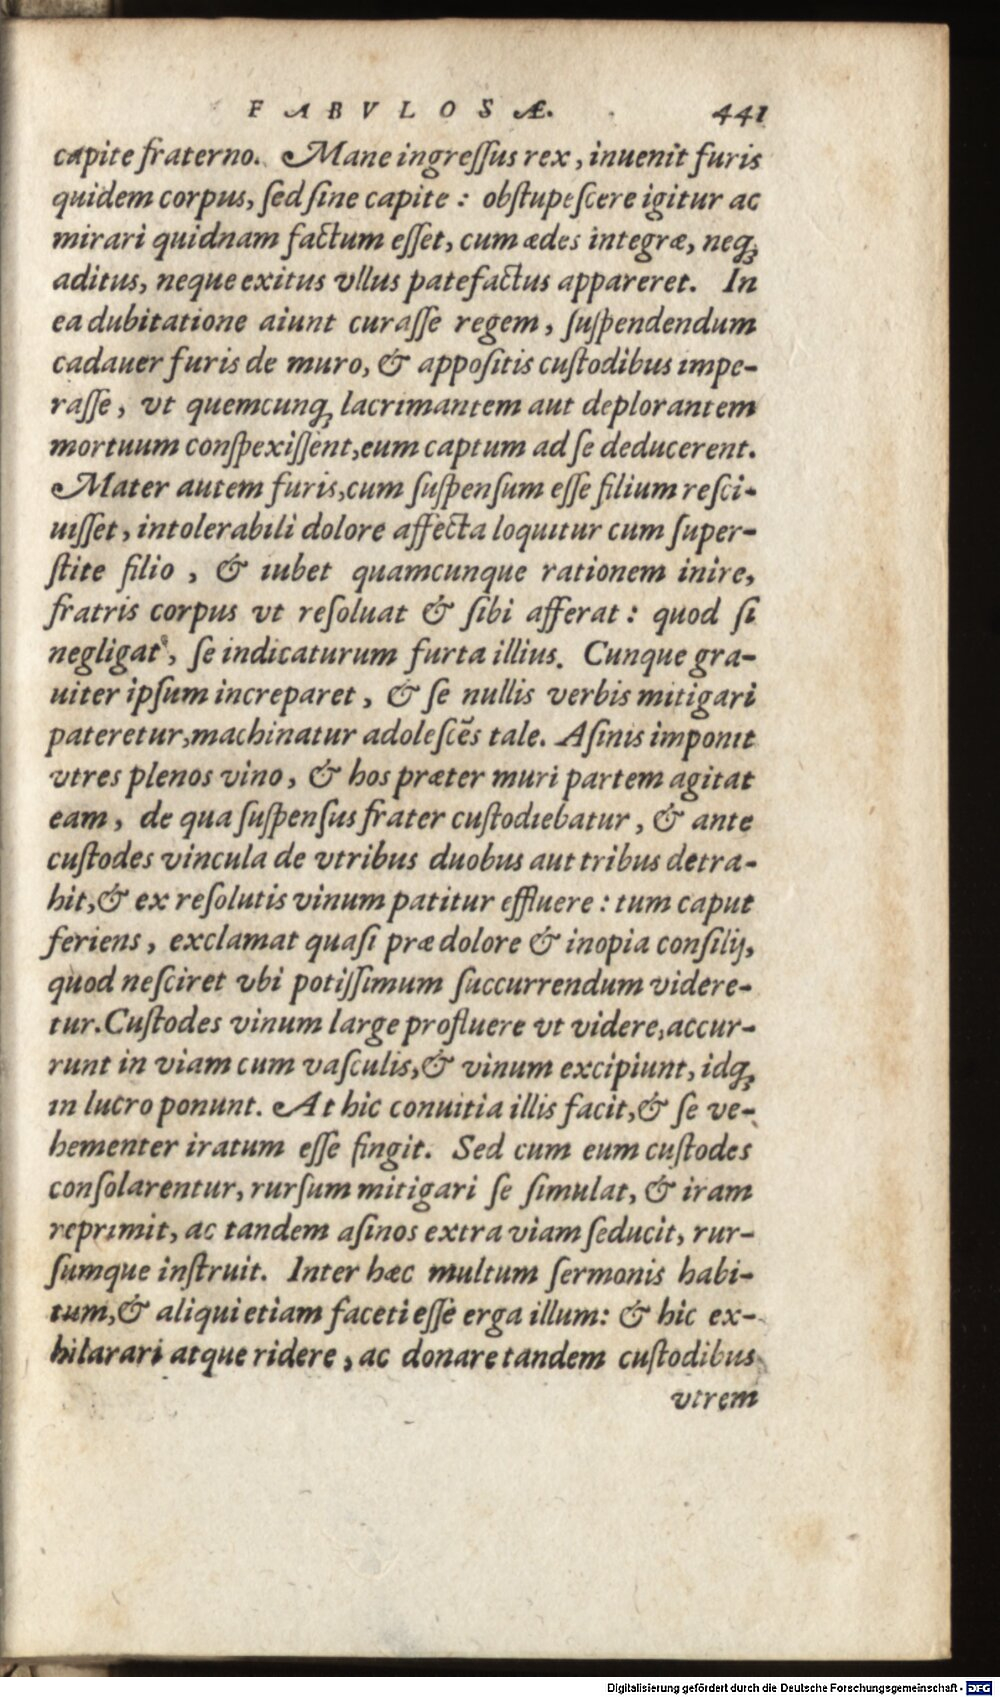 FABVLOSÆ. 441
capite fraterno. Mane ingreſſus rex, inuenit furis
quidem corpus, ſed ſine capite: obſtupeſcere igitur ac
mirari quidnam factum eſſet, cum ædes integræ, neq;
aditus, neque exitus vllus patefactus appareret. In
ea dubitatione aiunt curaſſe regem, ſuſpendendum
cadauer furis de muro, & appoſitis cuſtodibus impe-
raſſe, vt quemcunq; lacrimantem aut deplorantem
mortuum conſpexiſſent, eum captum ad ſe deducerent.
Mater autem furis, cum ſuſpenſum eſſe filium reſci-
uiſſet, intolerabili dolore affecta loquitur cum ſuper-
ſtite filio, & iubet quamcunque rationem inire,
fratris corpus vt reſoluat & ſibi afferat: quod ſi
negligat, ſe indicaturum furta illius. Cunque gra-
uiter ipſum increparet, & ſe nullis verbis mitigari
pateretur, machinatur adoleſcẽs tale. Aſinis imponit
vtres plenos vino, & hos præter muri partem agitat
eam, de qua ſuſpenſus frater cuſtodiebatur, & ante
cuſtodes vincula de vtribus duobus aut tribus detra-
hit, & ex reſolutis vinum patitur effluere: tum caput
feriens, exclamat quaſi præ dolore & inopia conſilij,
quod neſciret vbi potiſſimum ſuccurrendum videre-
tur. Cuſtodes vinum large profluere vt videre, accur-
runt in viam cum vaſculis, & vinum excipiunt, idq;
in lucro ponunt. At hic conuitia illis facit, & ſe ve-
hementer iratum eſſe fingit. Sed cum eum cuſtodes
conſolarentur, rurſum mitigari ſe ſimulat, & iram
reprimit, ac tandem aſinos extra viam ſeducit, rur-
ſumque inſtruit. Inter hæc multum ſermonis habi-
tum, & aliqui etiam faceti eſſe erga illum: & hic ex-
hilarari atque ridere, ac donare tandem cuſtodibus
vtrem
Digitalisierung gefördert durch die Deutsche Forschungsgemeinschaft - DFG